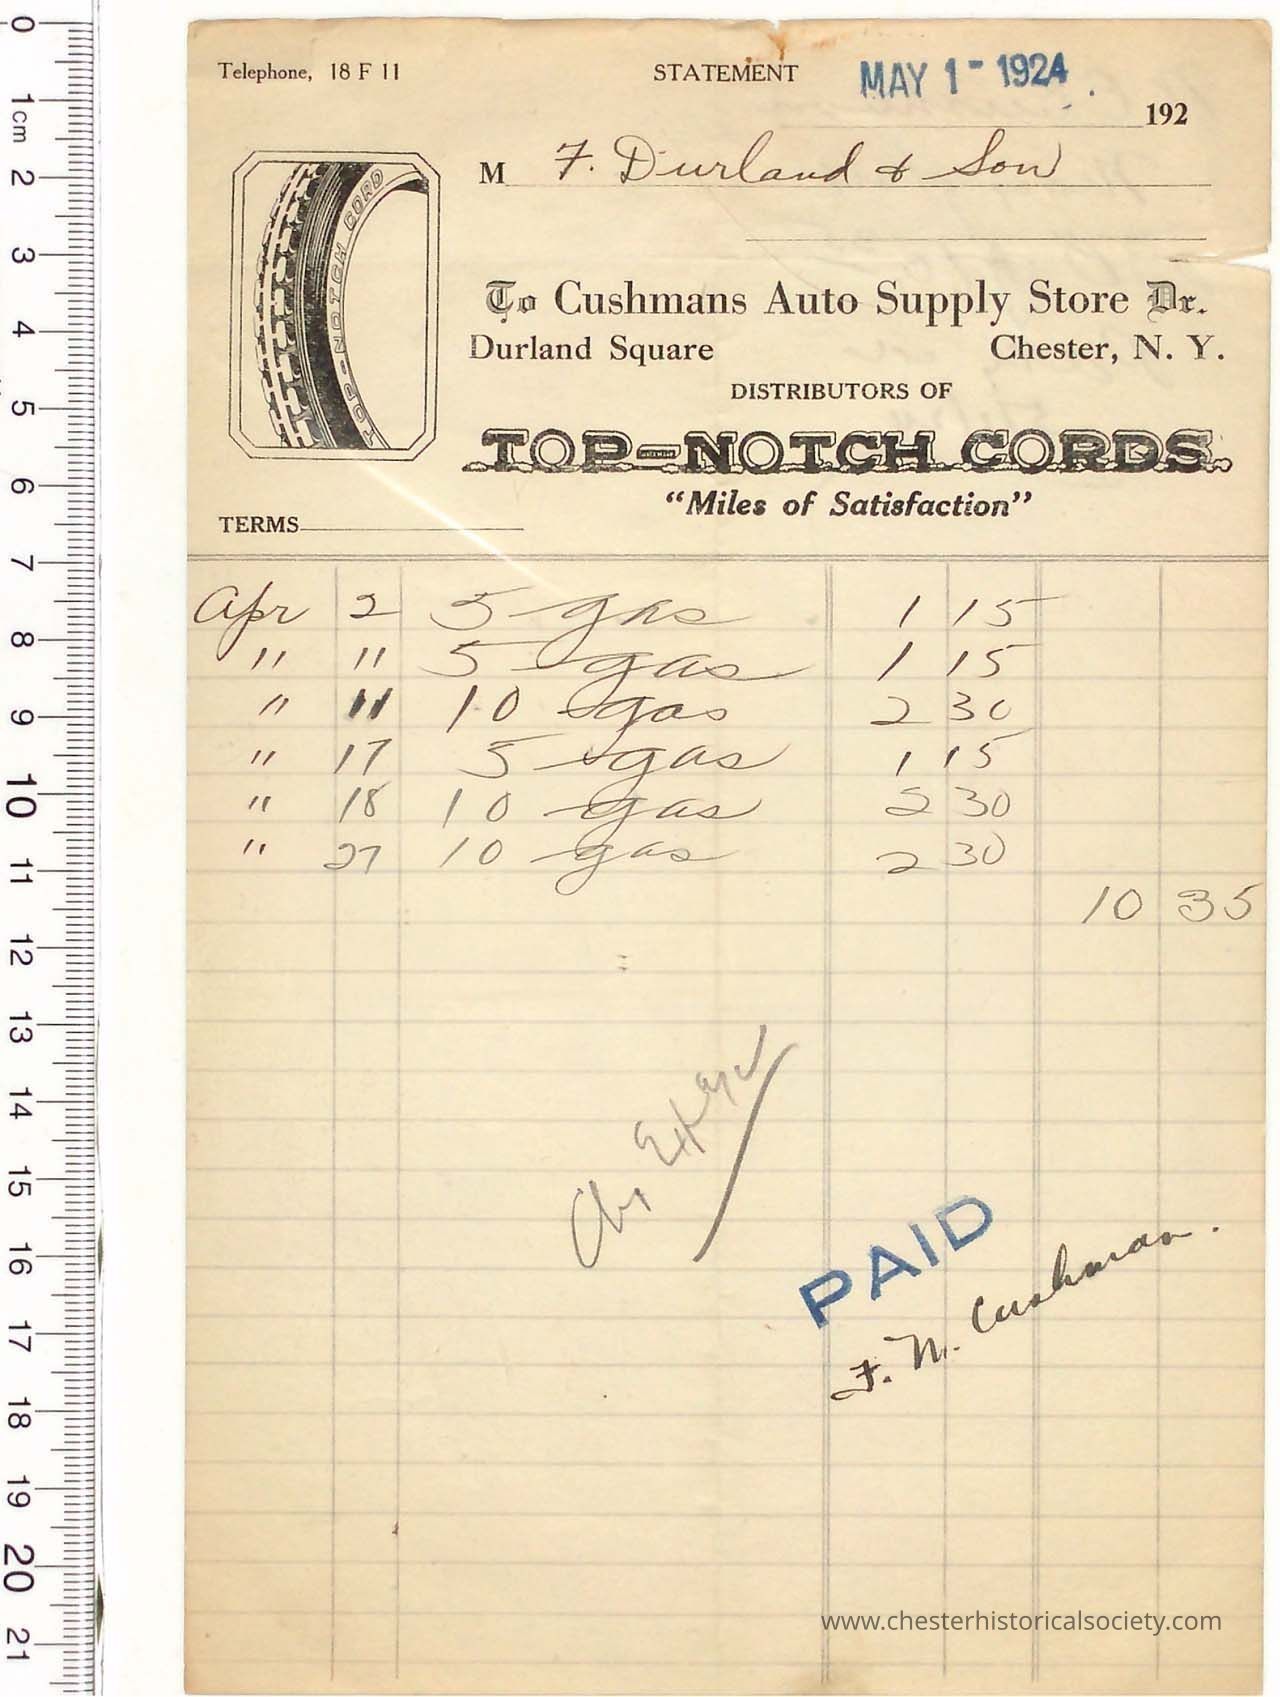 Telephone, 18 F 11
STATEMENT
MAY 1 - 1924
192
M F. Durland & Son
TOP-NOTCH CORD
To Cushmans Auto Supply Store Dr.
Durland Square Chester, N. Y.
DISTRIBUTORS OF
TOP-NOTCH CORDS
"Miles of Satisfaction"
TERMS
Apr 2 5 gas 1 15
" 11 5 gas 1 15
" 11 10 gas 2 30
" 17 5 gas 1 15
" 18 10 gas 2 30
" 27 10 gas 2 30
10 35
PAID
F. M. Cushman.
www.chesterhistoricalsociety.com
0 1cm 2 3 4 5 6 7 8 9 10 11 12 13 14 15 16 17 18 19 20 21